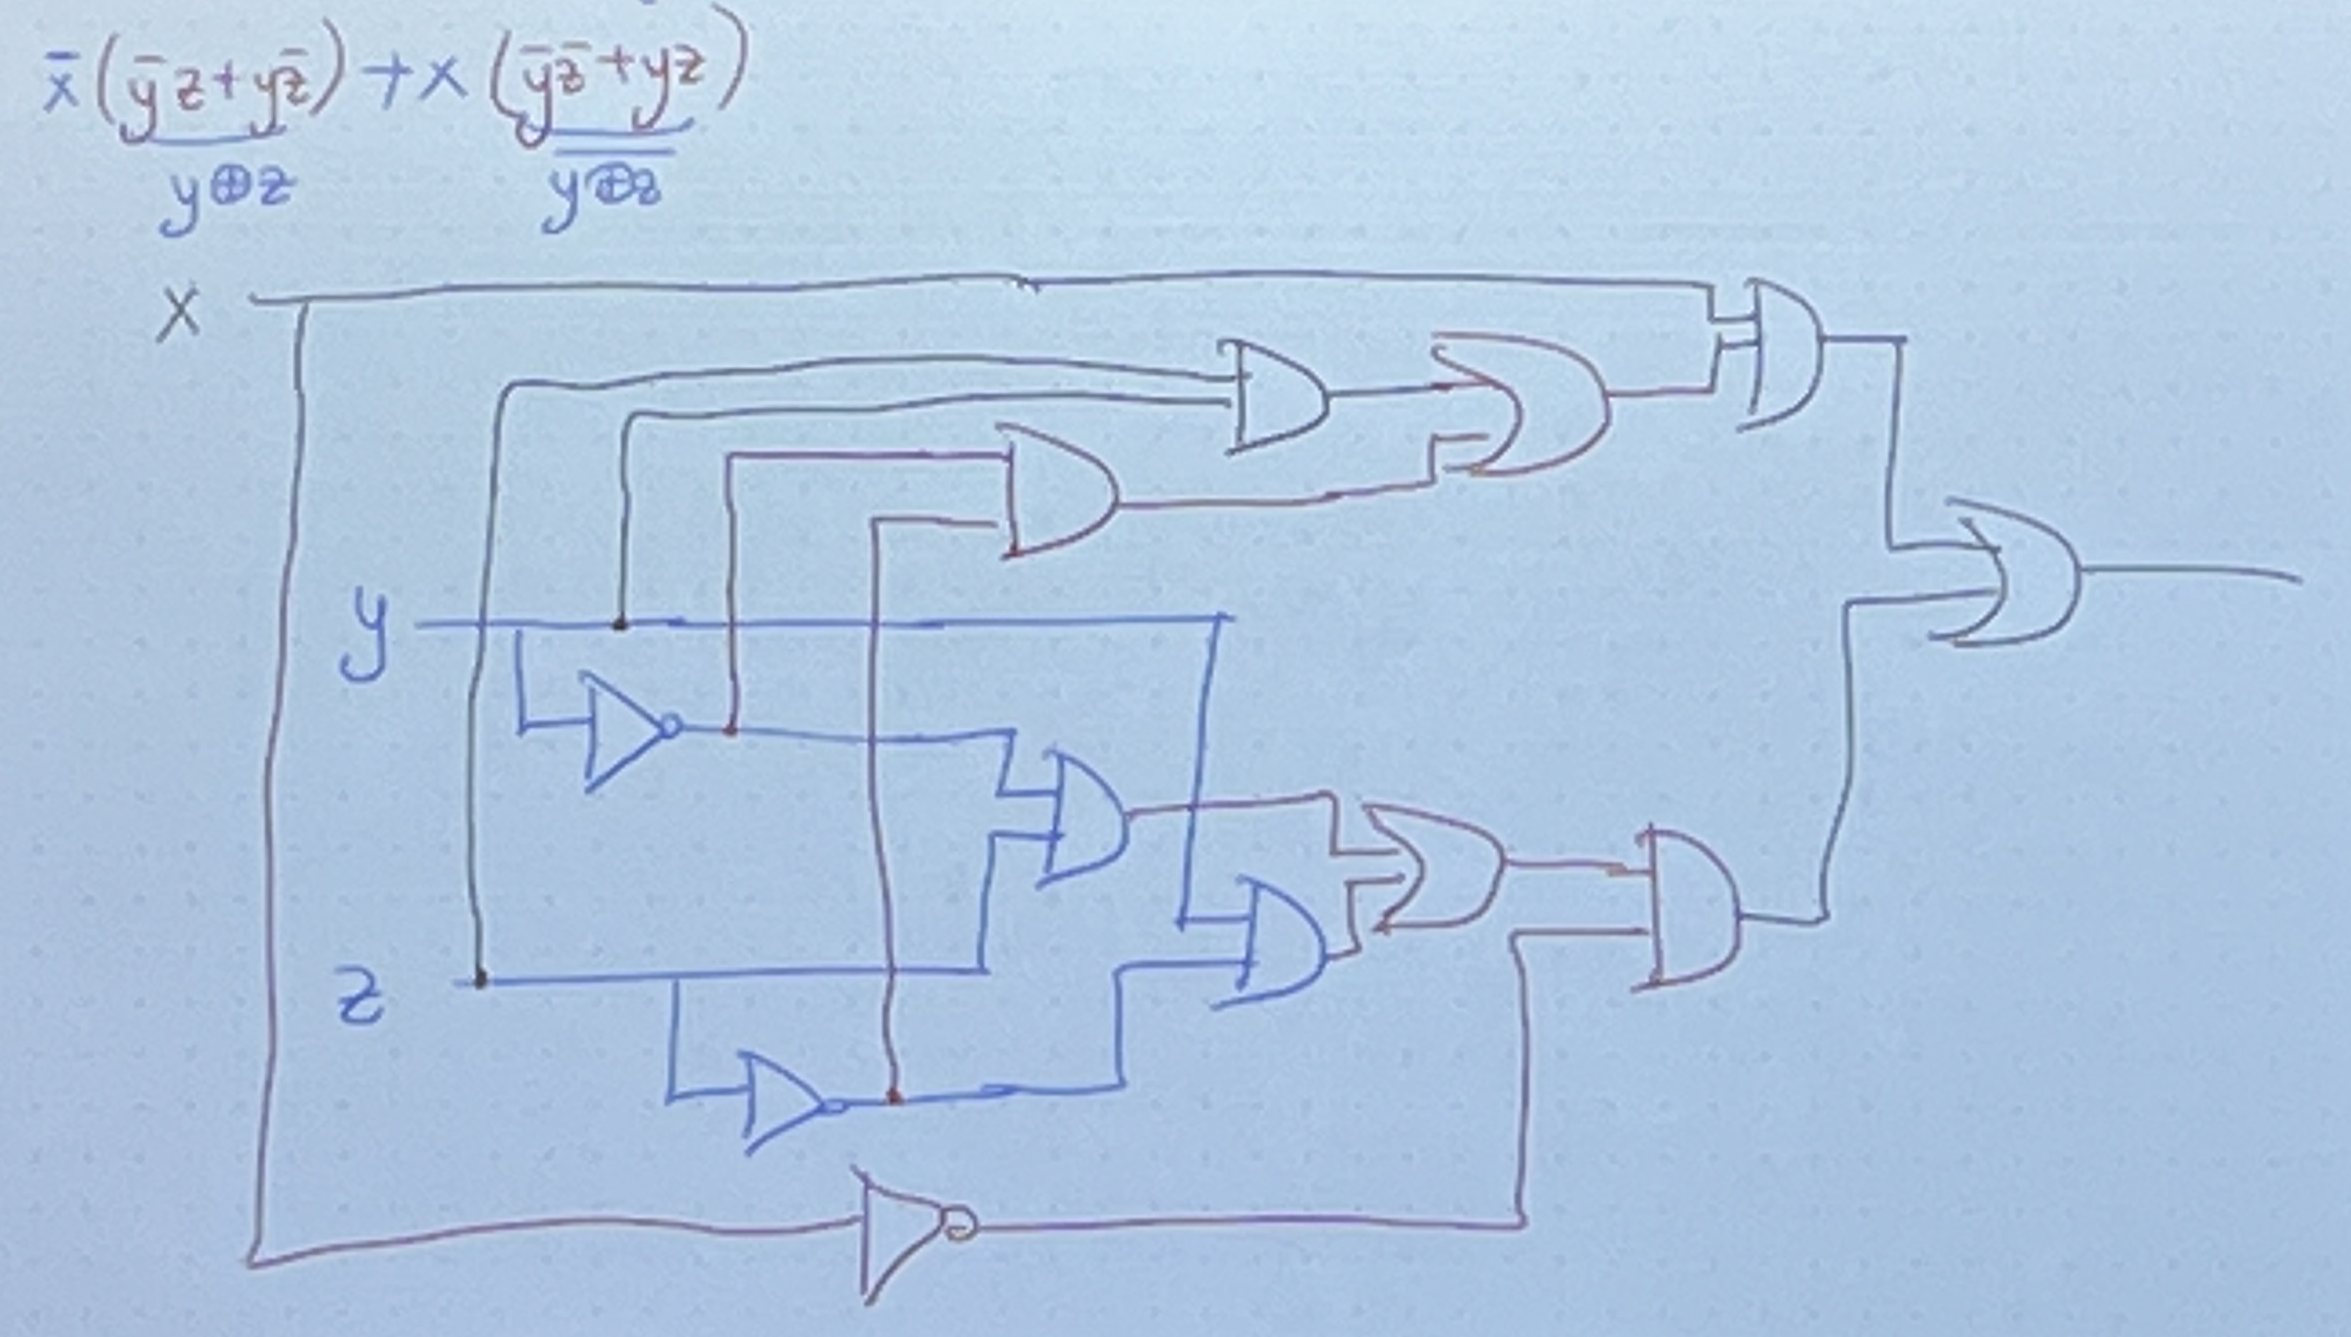 x̄(ȳz+yz̄)+x(ȳz̄+yz)
y⊕z y⊕z
X
y
z